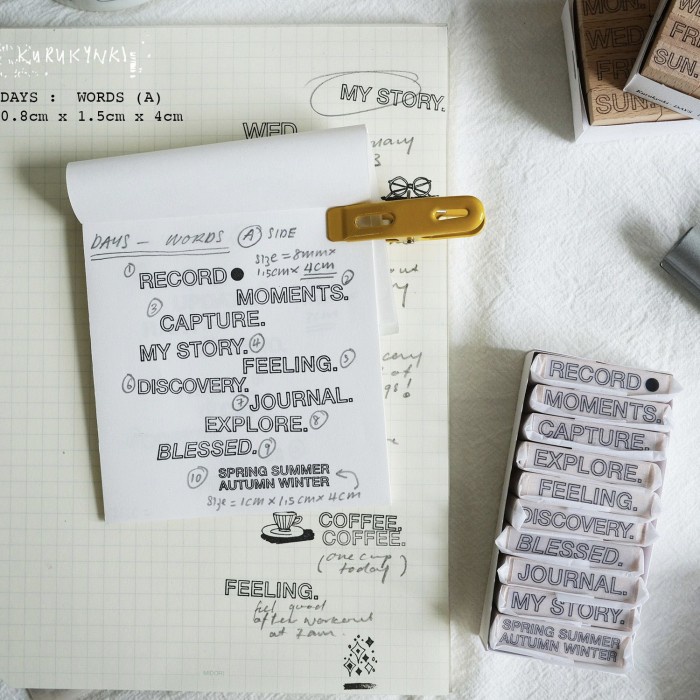 KURUKYNKI
DAYS : WORDS (A)
0.8cm x 1.5cm x 4cm
MY STORY.
WED
DAYS - WORDS (A) SIDE
SIZE = 8mm x
1.5cm x 4cm
① RECORD ●
MOMENTS. ②
③ CAPTURE.
MY STORY. ④
FEELING. ⑤
⑥ DISCOVERY.
⑦ JOURNAL.
EXPLORE. ⑧
BLESSED. ⑨
⑩ SPRING SUMMER
AUTUMN WINTER
SIZE = 1cm x 1.5cm x 4cm
COFFEE,
COFFEE.
(one cup
today)
FEELING.
feel good
after workout
at 7am.
MIDORI
MON.
WED.
FRI.
SUN.
FRI
SUN.
RECORD ●
MOMENTS.
CAPTURE.
EXPLORE.
FEELING.
DISCOVERY.
BLESSED.
JOURNAL.
MY STORY.
SPRING SUMMER
AUTUMN WINTER